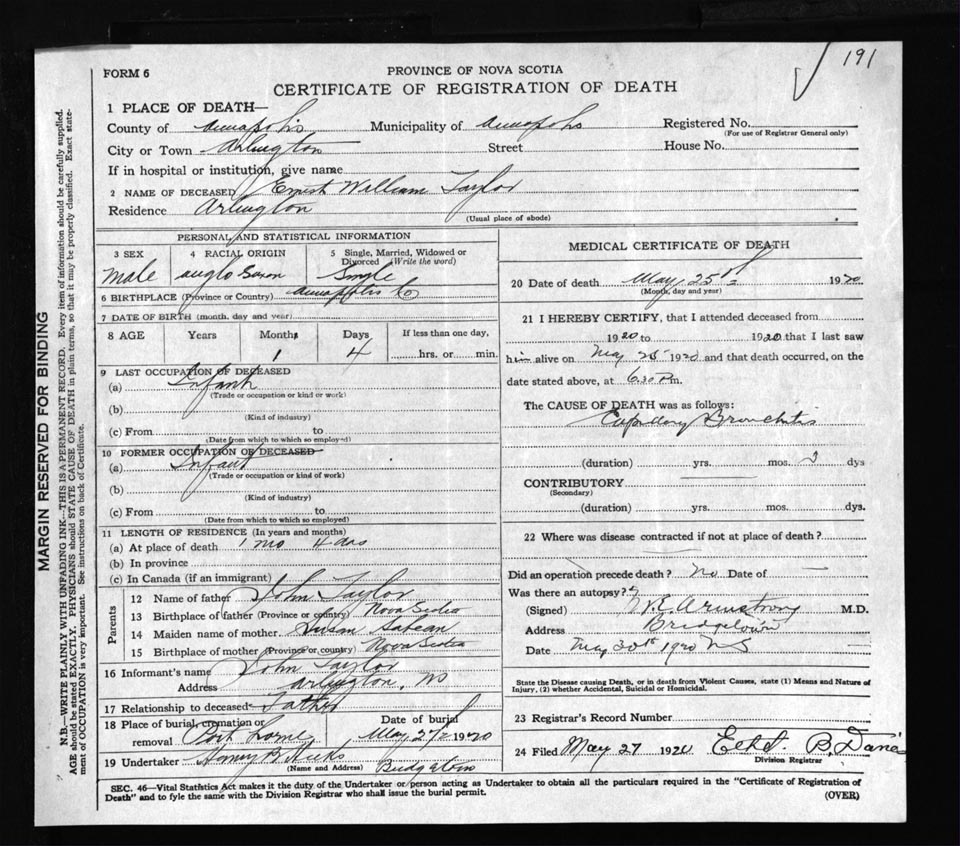 191
FORM 6
PROVINCE OF NOVA SCOTIA
CERTIFICATE OF REGISTRATION OF DEATH
1 PLACE OF DEATH—
County of Annapolis Municipality of Annapolis Registered No.
(For use of Registrar General only)
City or Town Arlington Street House No.
If in hospital or institution, give name
2 NAME OF DECEASED Ernest William Taylor
Residence Arlington
(Usual place of abode)
PERSONAL AND STATISTICAL INFORMATION
3 SEX 4 RACIAL ORIGIN 5 Single, Married, Widowed or Divorced (Write the word)
Male Anglo Saxon Single
6 BIRTHPLACE (Province or Country) Annapolis Co
7 DATE OF BIRTH (month, day and year)
8 AGE Years Months Days If less than one day,
1 4 hrs. or min.
9 LAST OCCUPATION OF DECEASED
(a) Infant
(Trade or occupation or kind or work)
(b)
(Kind of industry)
(c) From to
(Date from which to which so employed)
10 FORMER OCCUPATION OF DECEASED
(a) Infant
(Trade or occupation or kind of work)
(b)
(Kind of industry)
(c) From to
(Date from which to which so employed)
11 LENGTH OF RESIDENCE (In years and months)
(a) At place of death 1 mo 4 das
(b) In province
(c) In Canada (if an immigrant)
Parents
12 Name of father John Taylor
13 Birthplace of father (Province or country) Nova Scotia
14 Maiden name of mother Susan Sabean
15 Birthplace of mother (Province or country) Nova Scotia
16 Informant's name John Taylor
Address Arlington, NS
17 Relationship to deceased Father
18 Place of burial, cremation or removal Port Lorne Date of burial May 27 1920
19 Undertaker Hicks
(Name and Address) Bridgetown
MEDICAL CERTIFICATE OF DEATH
20 Date of death May 25th 1920
(Month, day and year)
21 I HEREBY CERTIFY, that I attended deceased from
1920 to 1920 that I last saw
him alive on May 25 1920 and that death occurred, on the
date stated above, at 6.30 P m.
The CAUSE OF DEATH was as follows:
Capillary Bronchitis
(duration) yrs. mos. 3 dys
CONTRIBUTORY
(Secondary)
(duration) yrs. mos. dys.
22 Where was disease contracted if not at place of death?
Did an operation precede death? No Date of —
Was there an autopsy?
(Signed) Armstrong M.D.
Address Bridgetown
Date May 30th 1920 NS
State the Disease causing Death, or in death from Violent Causes, state (1) Means and Nature of
Injury, (2) whether Accidental, Suicidal or Homicidal.
23 Registrar's Record Number
24 Filed May 27 1920
Division Registrar
SEC. 46—Vital Statistics Act makes it the duty of the Undertaker or person acting as Undertaker to obtain all the particulars required in the "Certificate of Registration of
Death" and to fyle the same with the Division Registrar who shall issue the burial permit. (OVER)
MARGIN RESERVED FOR BINDING
N.B.—WRITE PLAINLY WITH UNFADING INK—THIS IS A PERMANENT RECORD. Every item of information should be carefully supplied.
AGE should be stated EXACTLY. PHYSICIANS should STATE CAUSE OF DEATH in plain terms, so that it may be properly classified. Exact state-
ment of OCCUPATION is very important. See instructions on back of Certificate.